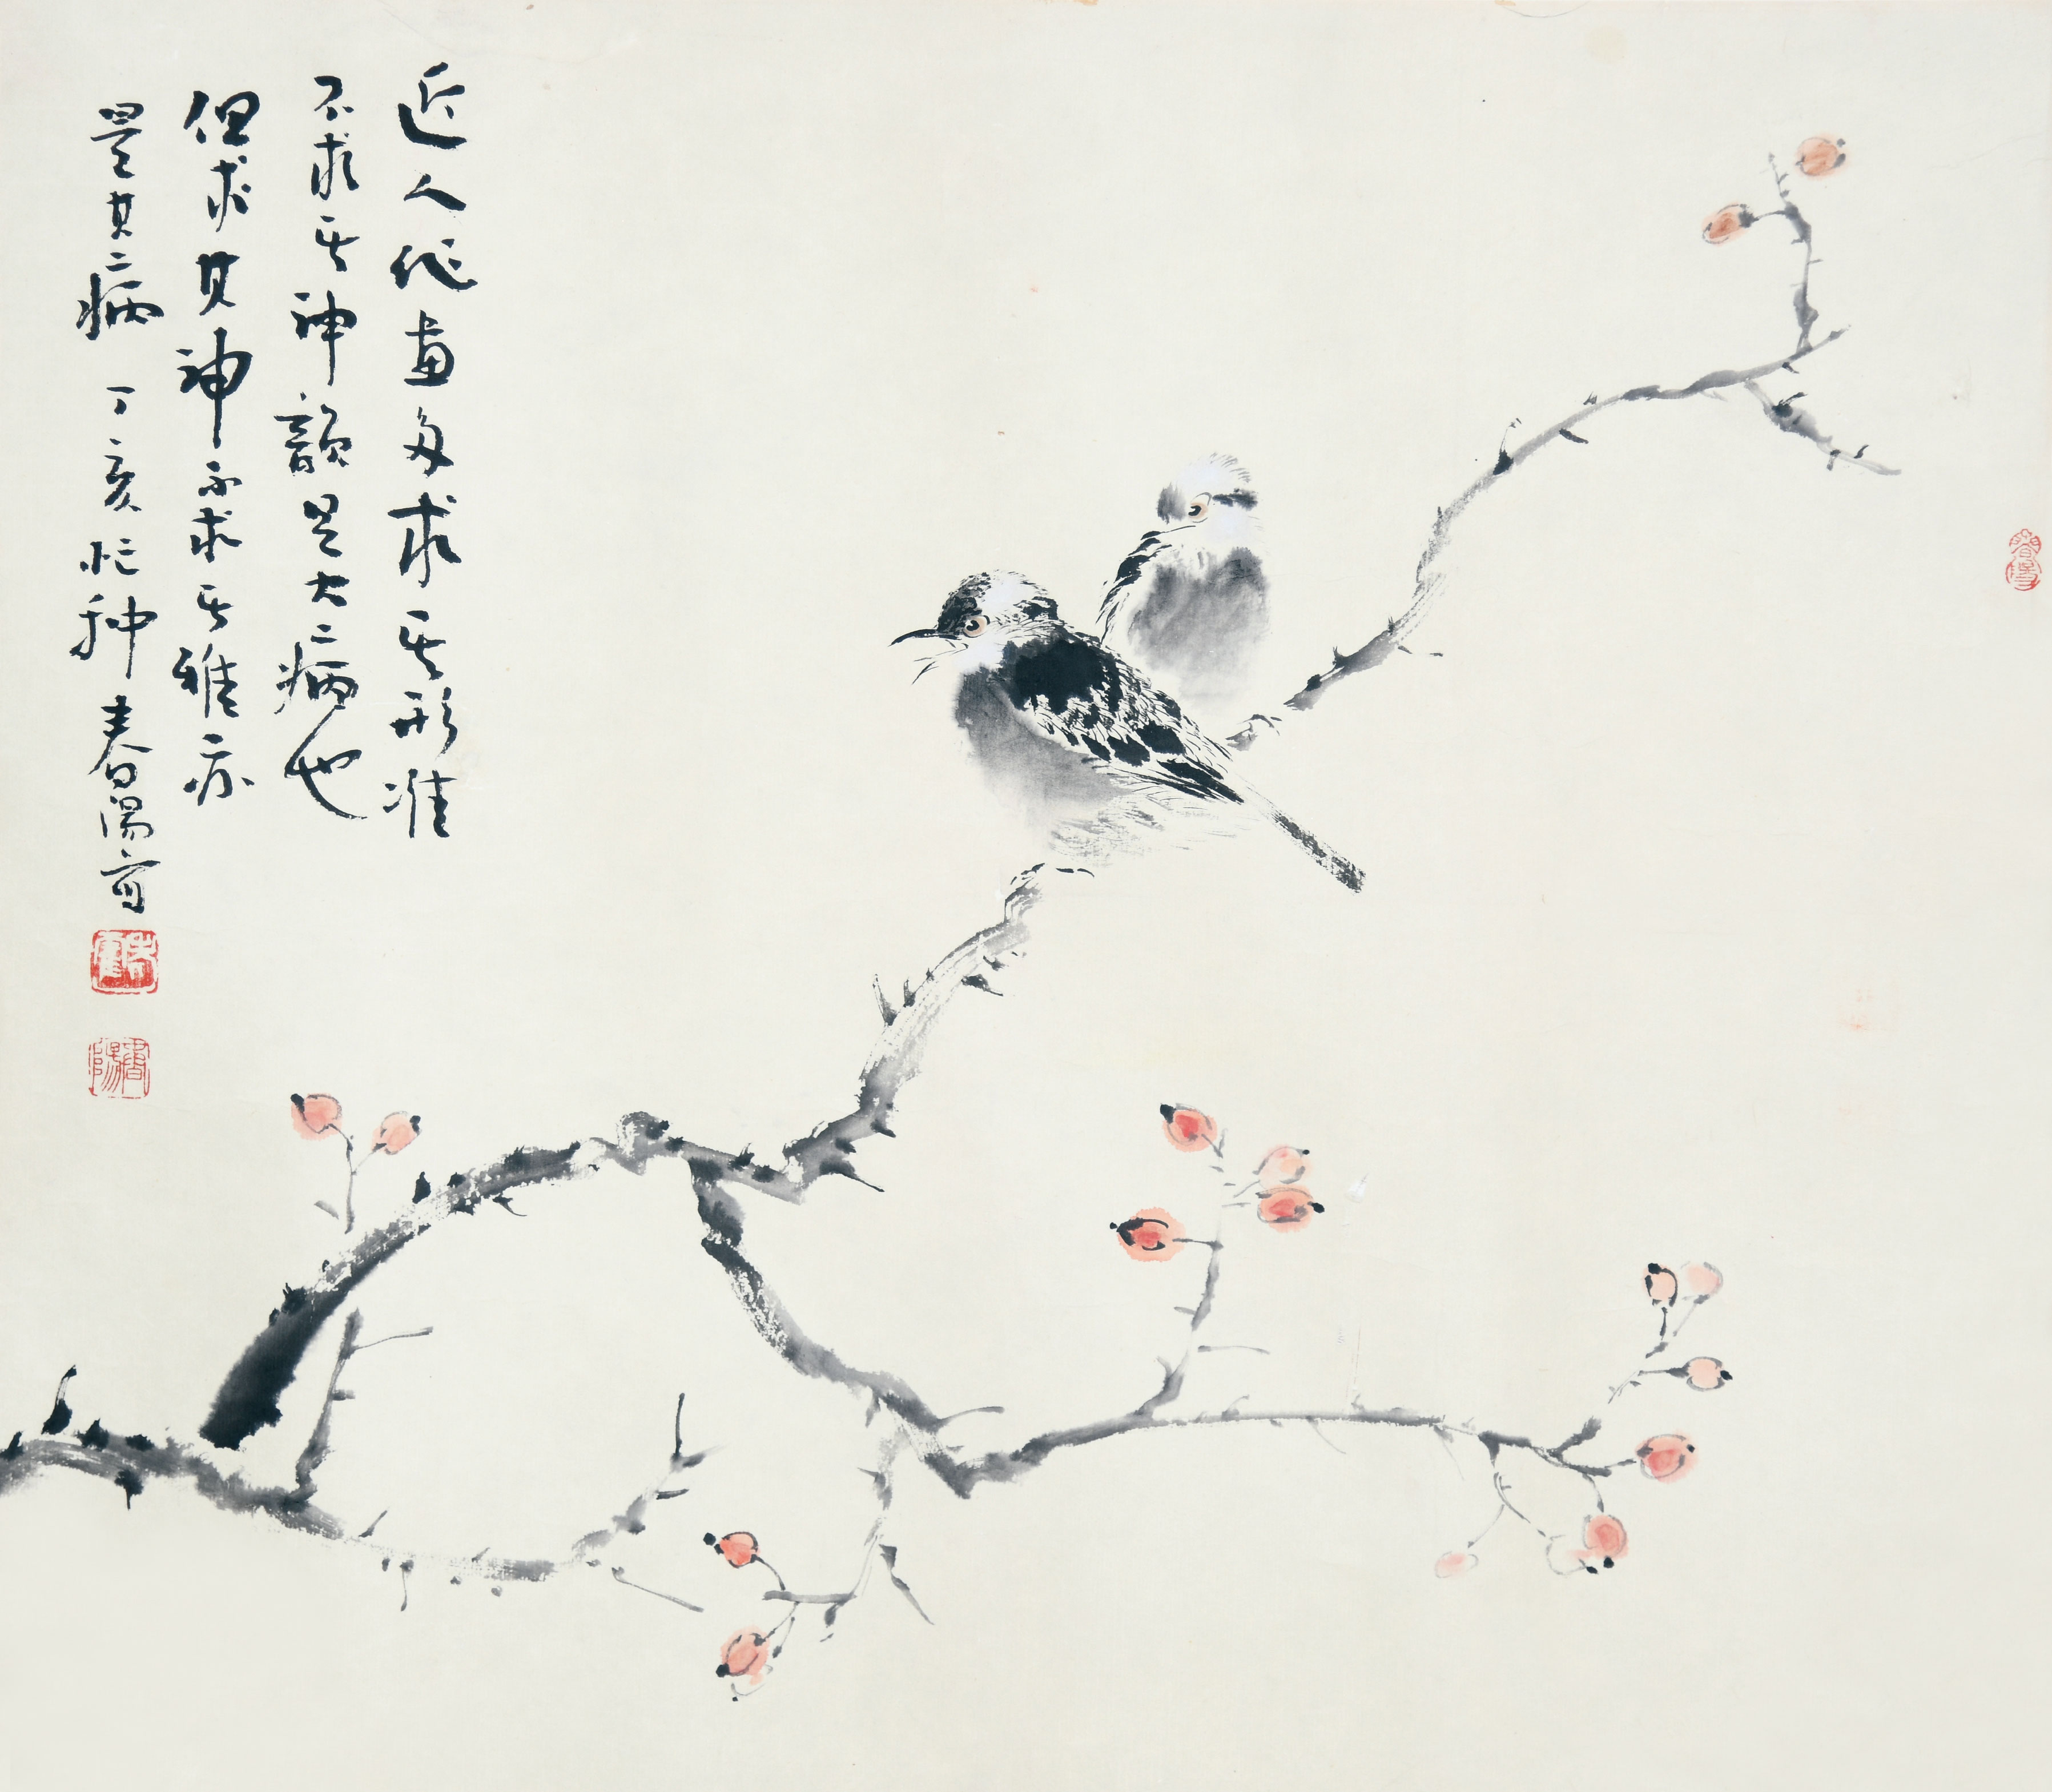 近人作画多求其形准
不求其神韻是大病也
但求其神不求其准亦
是其二病 丁亥忙种 春陽畫